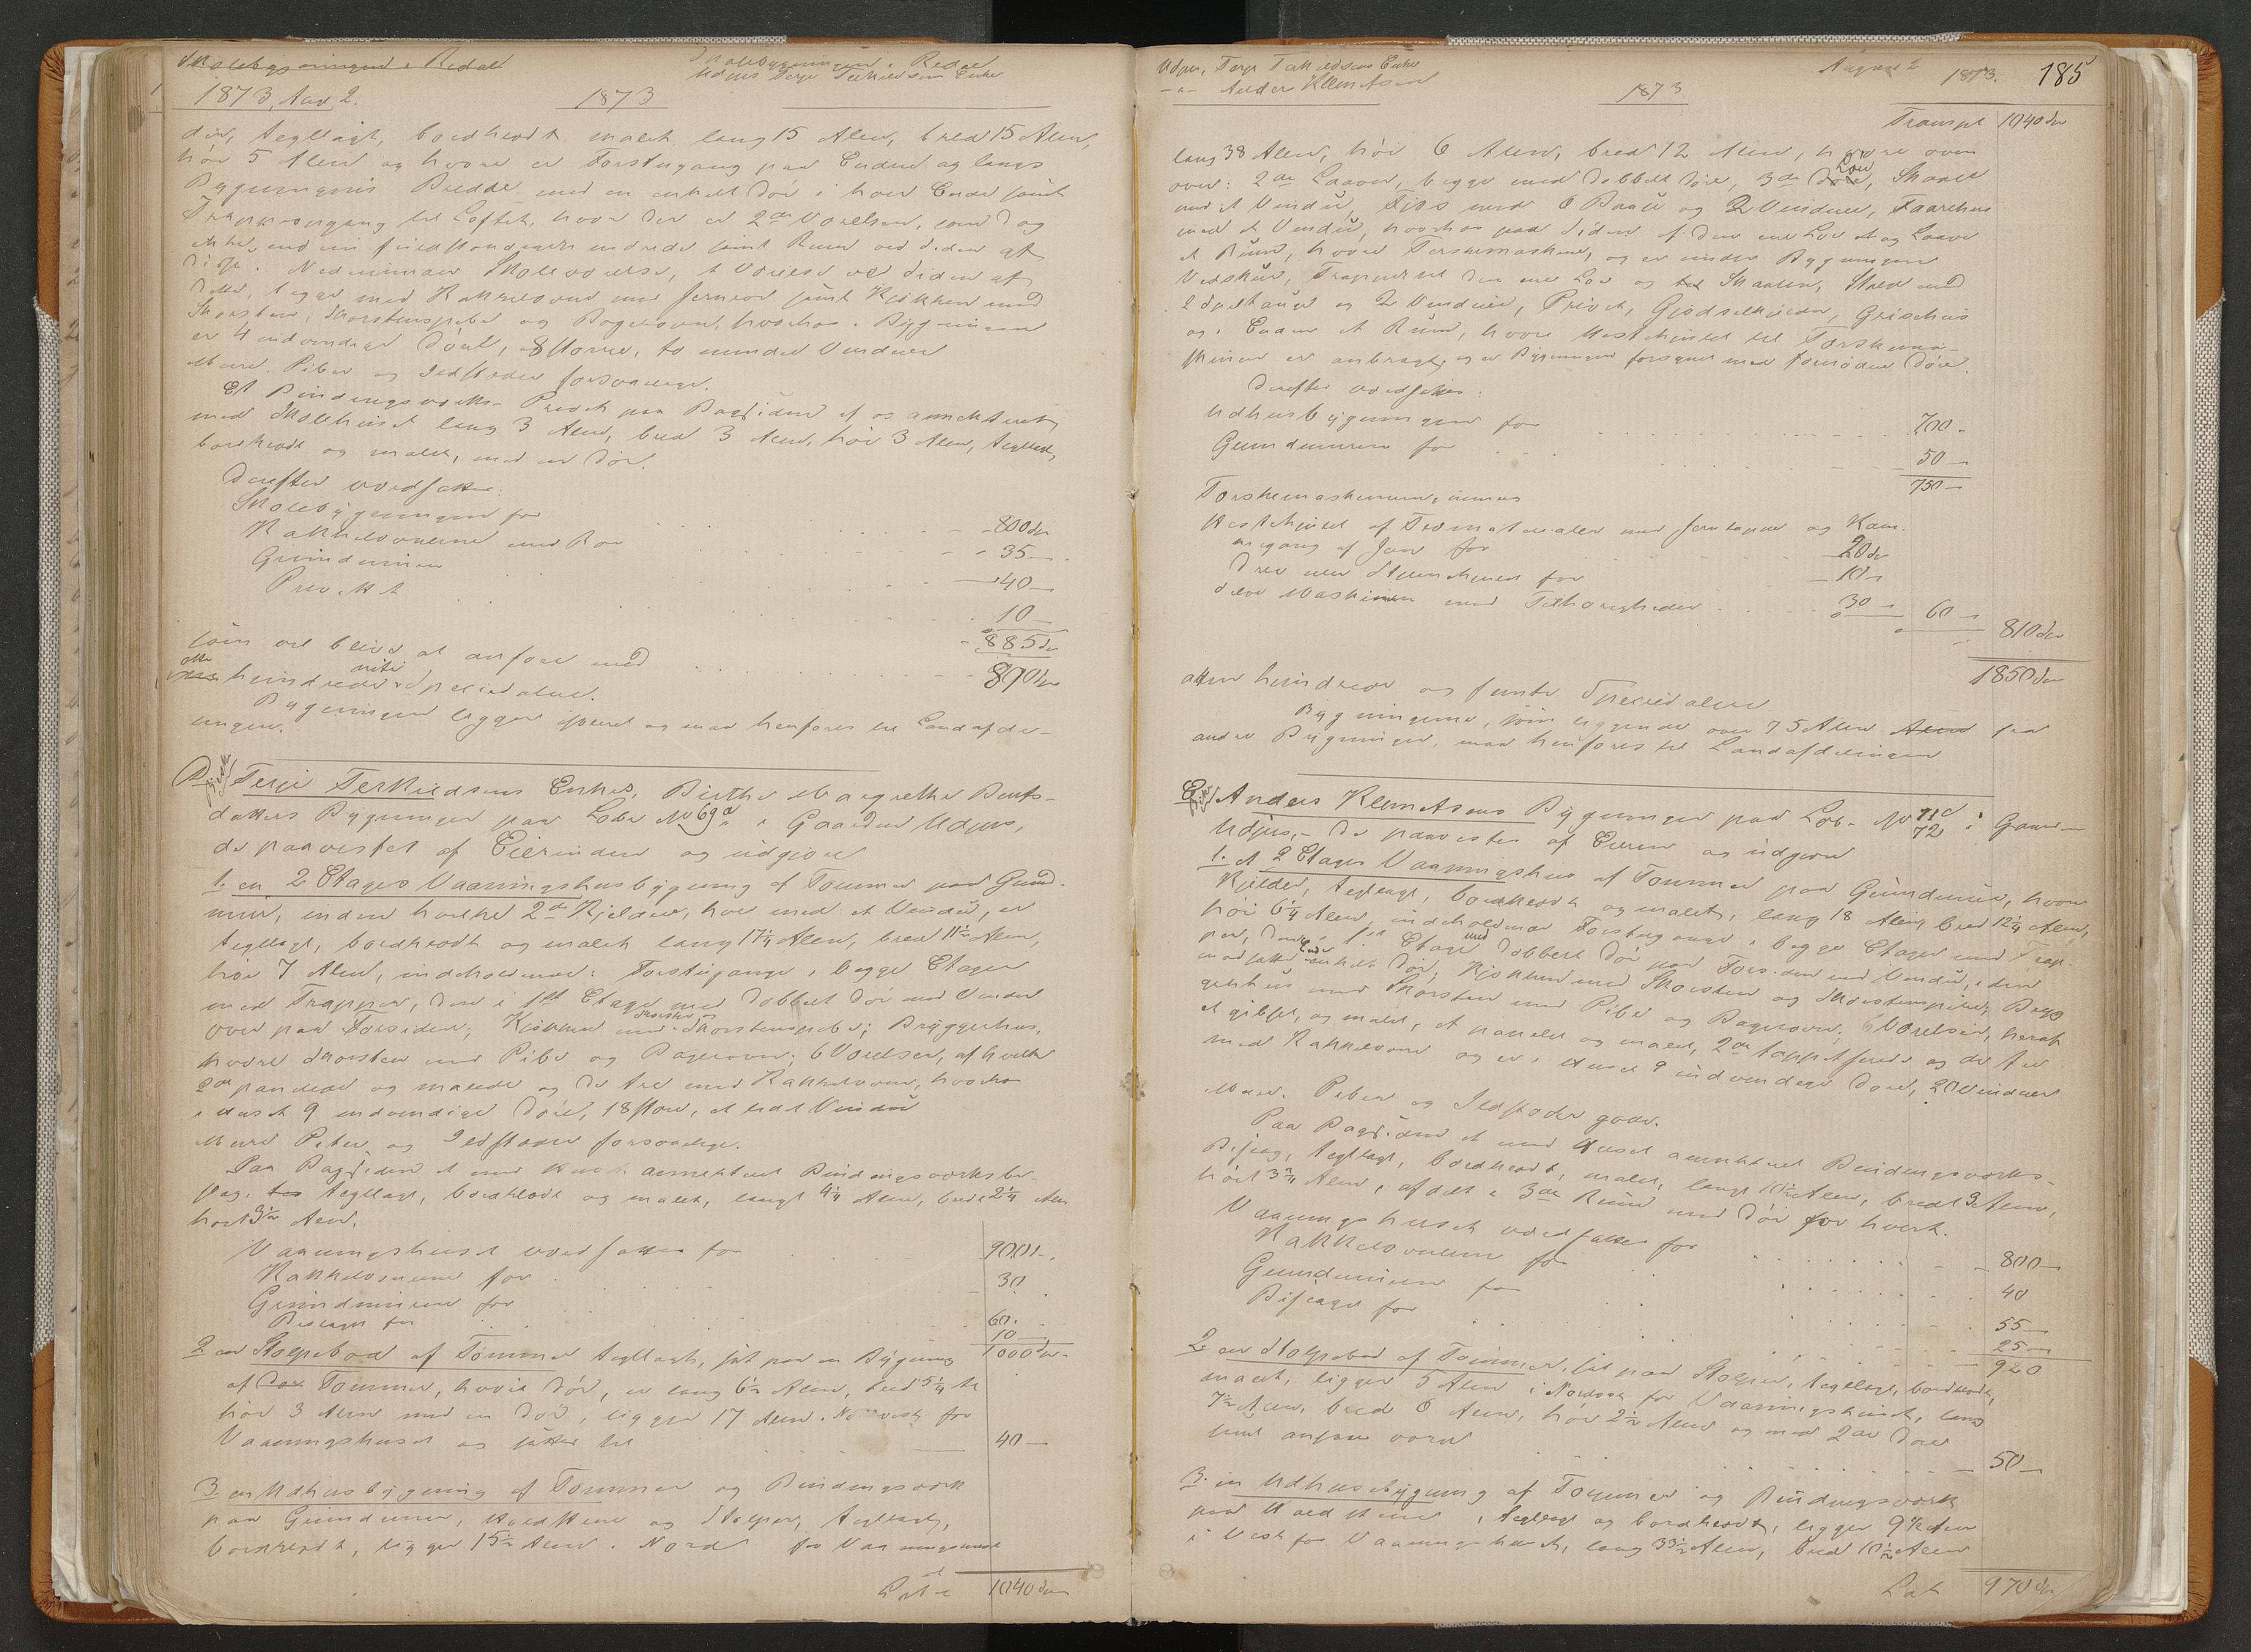 Skolebygningen i Redal
Skolebygningen i Redal
Udjus Terje Terkildsens Enke
1873, Aug 2.
1873
der, tegllagt, bordklædt, malet, lang 15 Alen, bred 15 Alen,
høi 5 Alen og hvore er Forstugang paa Enden og langs
Bygningens Bredde med en enkelt Dør i hver Ende samt
Trappeopgang til Loftet, hvor der er 2de Værelser, som dog
ikke end ere fuldstændigen indrede samt Rum ved Siden af
disse. Nedenunder Skoleværelse, 1 Værelse ved Siden af
dette, begge med Kakkelovne med Jernrør samt Kjøkken med
Skorsten, Skorstenspibe og Bagerovn, hvorhos i Bygningen
er 4 indvendige Døre, 8 større, to mindre Vinduer
Mure, Piber og Ildsteder forsvarlige.
Et Bindingsværks Privet paa Bagsiden af og annekteret
med Skolehuset lang 3 Alen, bred 3 Alen, høi 3 Alen, tegllagt,
bordklædt og malet, med en Dør.
Derefter værdsættes:
Skolebygningen for 800 dlr
Kakkelovnene med Rør 35 —
Grundmuren 40 —
Privettet 10 —
885 dlr
som vil blive at anføre med 890 dlr
otte hundrede niti Speciedaler.
Bygningen ligger isoleret og maa henføres til Landafde-
lingen.
D. Terje Terkildsens Enkes, Birthe Margrethe Bents-
datters Bygninger paa Løbe No 69a i Gaarden Udjus,
de paavistes af Eierinden og udgjøre
1. en 2 Etages Vaaningshusbygning af Tømmer paa Grund-
mur, inden hvilke 2de Kjeldere, hver med et Vindu, er
tegllagt, bordklædt og malet lang 17¼ Alen, bred 11½ Alen,
høi 7 Alen, indeholdende: Forstugange i begge Etager
med Trapper, den i 1ste Etage med dobbelt Dør med Vindu
over paa Forsiden; Kjøkken med Skorsten og Skorstenspibe; Bryggerhus,
hvore Skorsten med Pibe og Bagerovn; 6 Værelser, af hvilke
2de panelede og malede og de tre med Kakkelovne, hvorhos
i Huset 9 indvendige Døre, 18 store, et lidet Vindu
Mure Piber og Ildsteder forsvarlige.
Paa Bagsiden et med Huset annekteret Bindingsværksbi-
slag, tegllagt, bordklædt og malet, langt 4¼ Alen, bredt 2¼ Alen
høit 3½ Alen.
Vaaningshuset værdsattes for 900 —
Kakkelovnene for 30.
Grundmuren for 60.
Bislaget for 10 —
1000 dlr
2 en Stolpebod af Tømmer tegllagt, sat paa en Bygning
af Tømmer, hvori Dør, er lang 6½ Alen, bred 5¼ Al
høi 3 Alen med en Dør, ligger 17 Alen i Nordvest for
Vaaningshuset og sættes til 40 —
3. en Udhusbygning af Tømmer og Bindingsværk
paa Grundmur, Holdstene og Stolper, tegllagt,
bordklædt, ligger 15½ Alen i Nord for Vaaningshuset
Lat 1040 dlr
Udjus, Terje Terkildsens Enke
— " — Anders Klemetsen
August 2
1873. 185
1873
Transpt 1040 dlr
lang 38 Alen, høi 6 Alen, bred 12 Alen, hvore oven
over: 2de Laaver, begge med dobbelt Døre, 3de Løer, Skaale
med et Vindu, Fjøs med 6 Baase og 2 Vinduer, Faarehus
med et Vindu, hvorhos paa Siden af den ene Løe et og Laave
et Rum, hvore Terskemaskine, og er under Bygningen
Vedskur, Trapper til den ene Løe og til Skaalen, Stald med
2 Spiltauge og 2 Vinduer, Privet, Gjødselkjelder, Grisehus
og i Enden et Rum, hvore Hestehjulet til Tærskema-
skinen er anbragt, og er Bygningen forsynet med fornødne Døre.
Derefter værdsættes:
Udhusbygningen for 700 —
Grundmuren for 50 —
750 —
Tærskemaskinen, nemlig
Hestehjulet af Træmaterialer med Jerntapper og Kam-
megang af Jern for 20 dlr
Drev med Stjernehjul for 10 —
Selve Maskinen med Tilhørigheder 30 — 60 —
810 dlr
1850 dlr
atten hundrede og femti Speciedaler
Bygningerne, som liggende over 75 Alen fra
andre Bygninger, maa henføres til Landafdelingen
E. Anders Klemetsens Bygninger paa Løb- No 71d 72 i Gaarden
Udjus, — De paavistes af Eieren og udgjøre
1. et 2 Etages Vaaningshus af Tømmer paa Grundmur, hvore
Kjelder, tegllagt, bordklædt og malet, lang 18 Alen, bred 12¼ Alen,
høi 6¼ Alen, indeholdende Forstugange i begge Etager med Trap-
per, den i 1ste Etage med dobbelt Dør paa Forsiden med Vindu, i den
modsatte Ende enkelt Dør; Kjøkken med Skorsten og Skorstenspibe; Bryg-
gerhus med Skorsten med Pibe og Bagerovn; 6 Værelser, heraf
et gibset, og malet, et panelet og malet, 2de tappetserede og de tre
med Kakkelovne og er i Huset 9 indvendige Døre, 20 Vinduer
Mure, Piber og Ildsteder gode.
Paa Bagsiden et med Huset annekteret Bindingsværks-
Bislag, tegllagt, bordklædt, malet, langt 10½ Alen, bredt 3 Alen,
høit 3¾ Alen, afdelt i 3de Rum med Dør for hvert.
Vaaningshuset værdsattes for 800 —
Kakkelovnene for 40
Grundmuren for 55 —
Bislaget for 25 —
920
2 en Stolpebod af Tømmer, sat paa Stolper, tegllagt, bordklædt,
malet, ligger 5 Alen i Nordvest for Vaaningshuset, lang
7½ Alen, bred 6 Alen, høi 2½ Alen og med 2de Døre
50 —
3. en Udhusbygning af Tømmer og Bindingsværk
paa Holdstene, tegllagt og bordklædt, ligger 9½ Alen
i Vest for Vaaningshuset, lang 33½ Alen, bred 10½ Alen
Lat 970 dlr